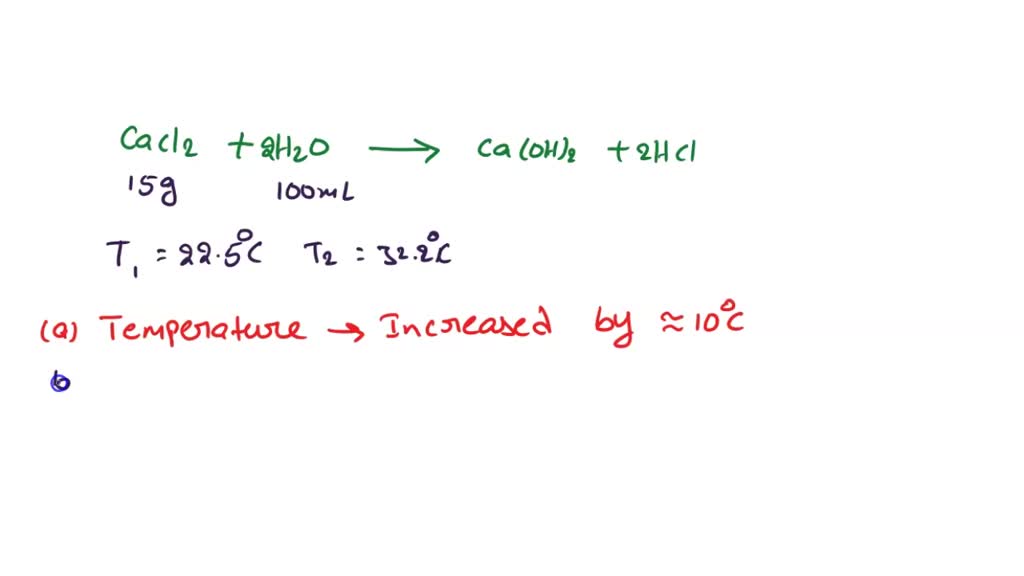 CaCl2 + 2H2O → Ca(OH)2 + 2HCl
15g 100mL
T1 = 22.5°C T2 = 32.2°C
(a) Temperature → Increased by ≈ 10°C
b